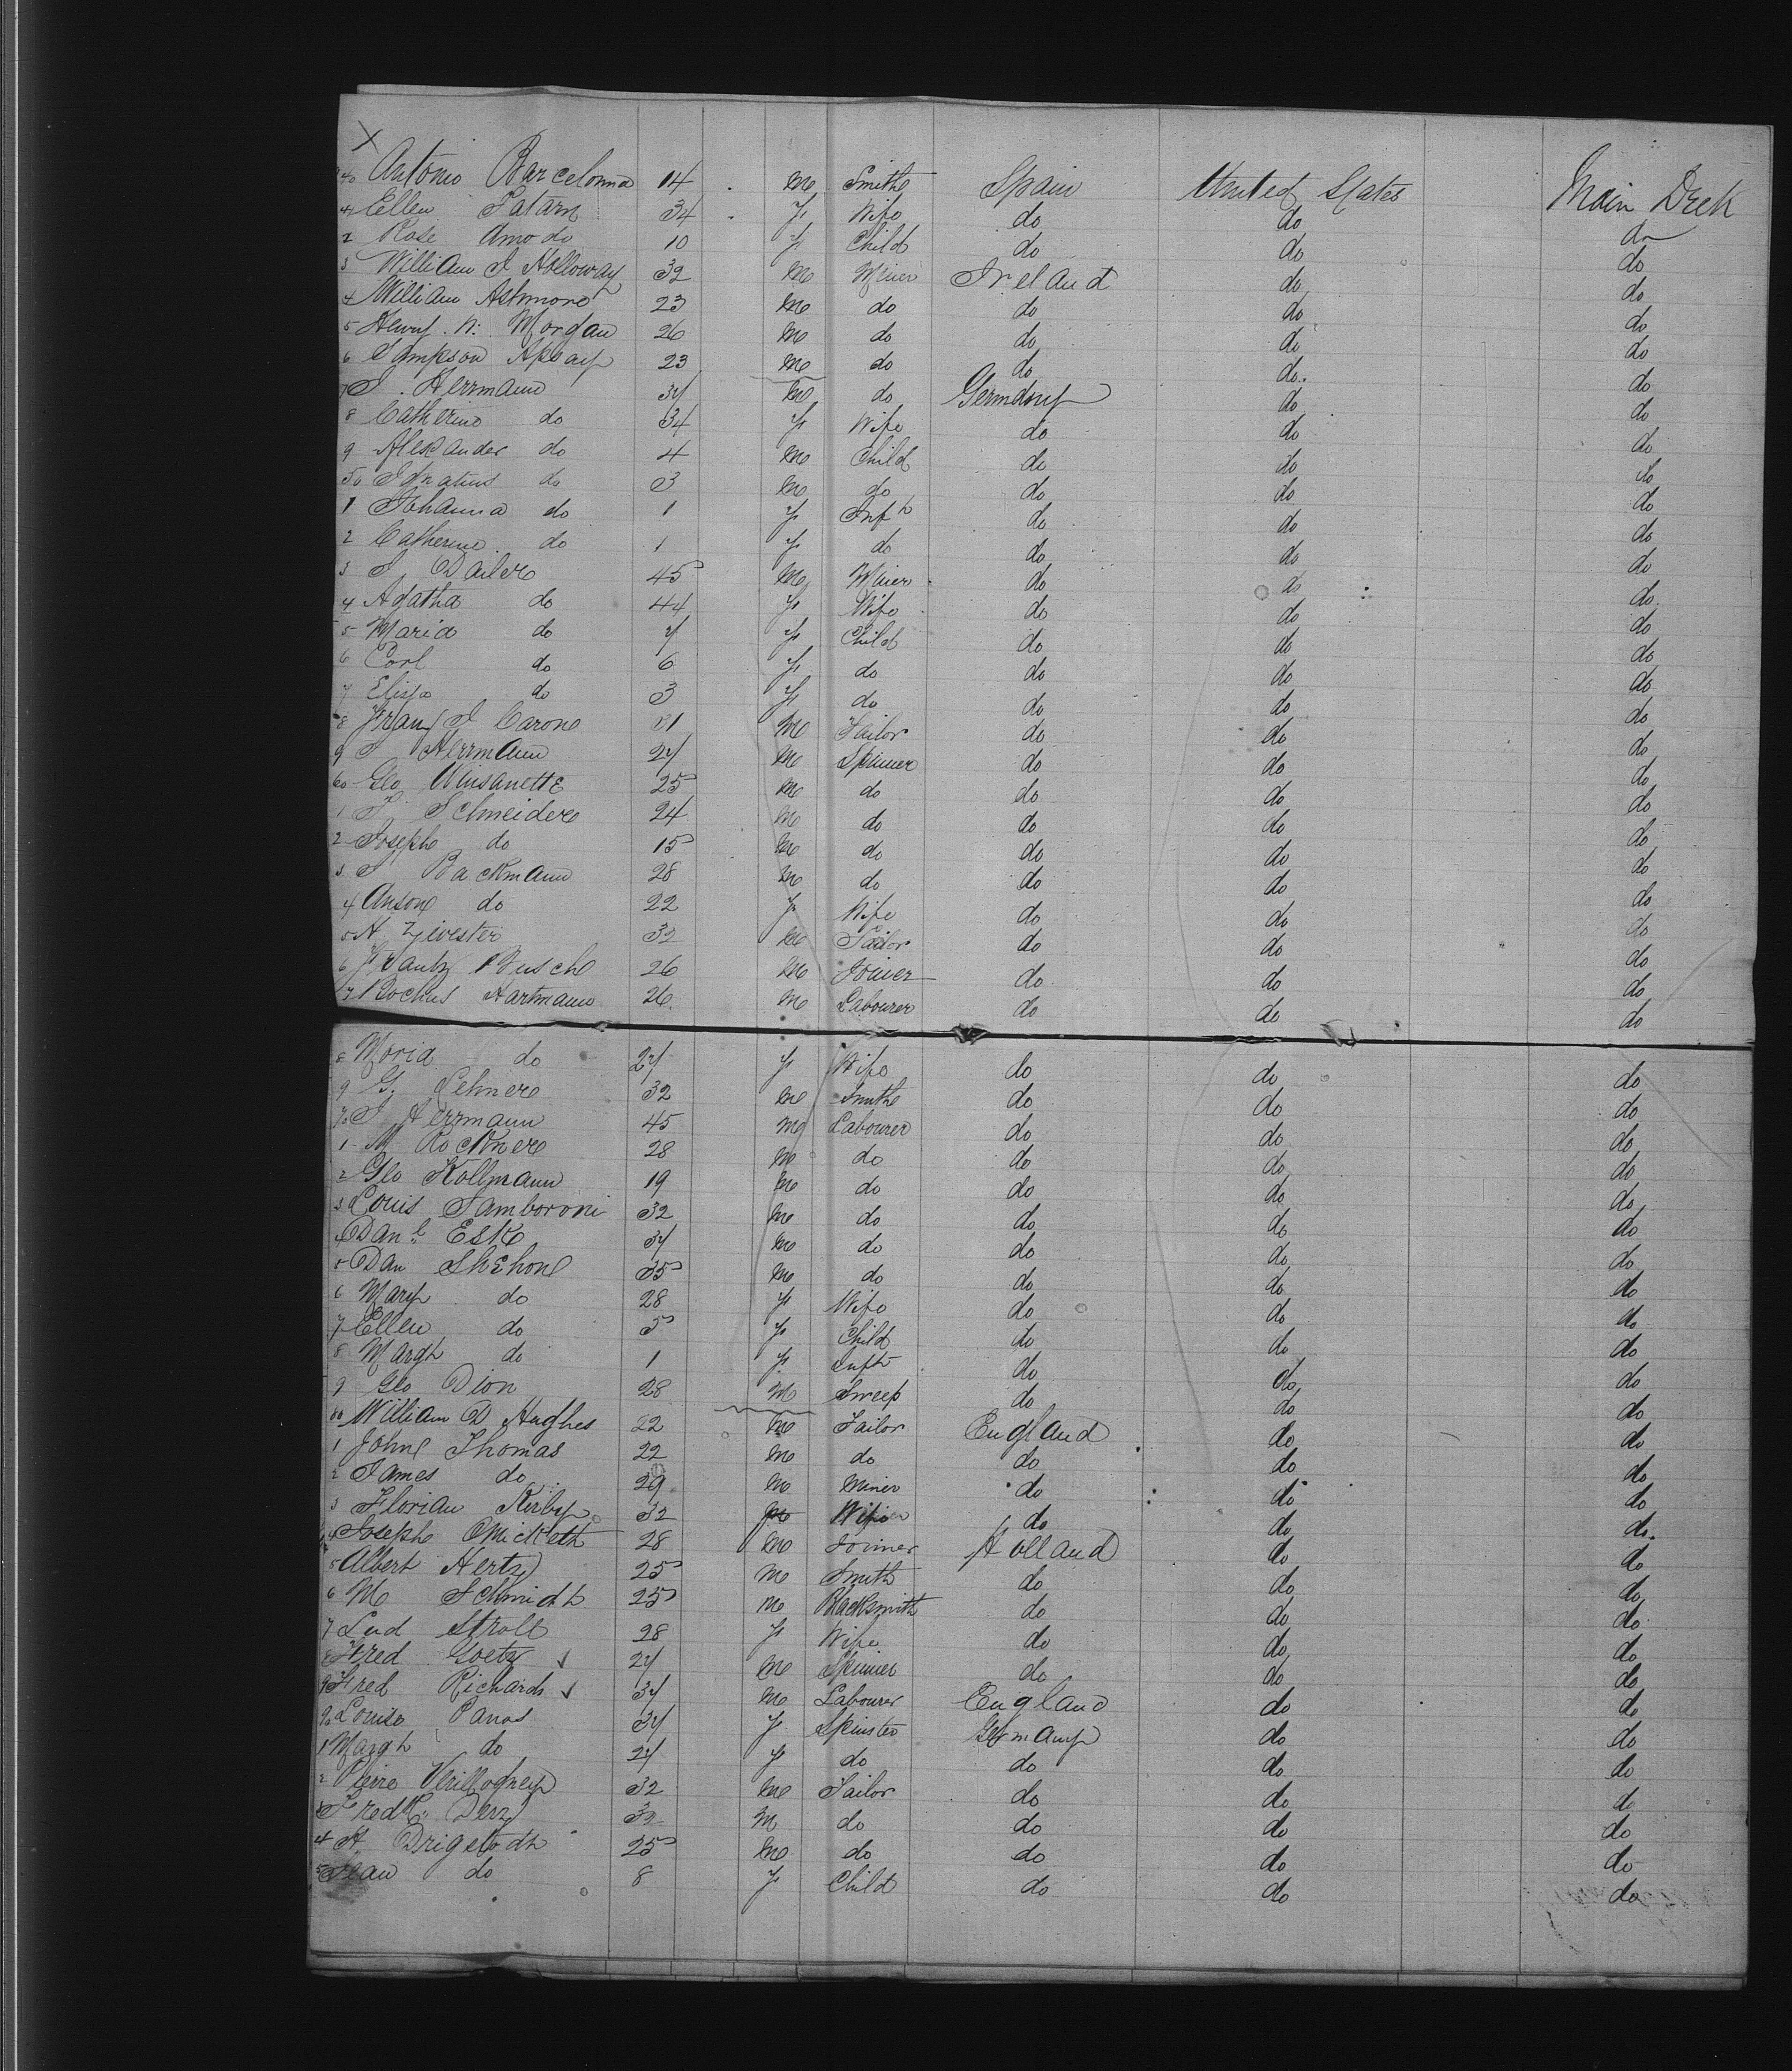 X
40 Antonio Barcelonna 14 m Smith Spain United States Main Deck
41 Ellen 34 f Wife do do do
2 Rose Amodo 10 f Child do do do
3 William J Holloway 32 m Miner Ireland do do
4 William Ashmore 23 m do do do do
5 Henry N. Morgan 26 m do do do do
6 Sampson 23 m do do do. do
7 J. Herrmann 37 m do Germany do do
8 Catherine do 34 f Wife do do do
9 Alexander do 4 m Child do do do
50 Ignatius do 3 m do do do do
1 Johanna do 1 f Inft do do do
2 Catherine do 1 f do do do do
3 J Dailer 45 m Miner do do do
4 Agatha do 44 f Wife do do do
5 Maria do 7 f Child do do do
6 Carl do 6 f do do do do
7 Elisa do 3 f do do do do
8 Franz J Carone 31 m Tailor do do do
9 J Herrmann 27 m Spinner do do do
60 Geo Winsanette 25 m do do do do
1 F. Schneider 24 m do do do do
2 Joseph do 15 m do do do do
3 J Backmann 28 m do do do do
4 Anson do 22 f Wife do do do
5 A. Zjivester 32 m Tailor do do do
6 Frantz Busch 26 m Joiner do do do
7 Rochus Hartmann 26 m Labourer do do do
8 Maria do 27 f Wife do do do
9 G. Lehner 32 m Smith do do do
70 J Herrmann 45 m Labourer do do do
1 M Rockner 28 m do do do do
2 Geo Kollmann 19 m do do do do
3 Louis Tamboroni 32 m do do do do
4 Danl Esk 37 m do do do do
5 Dan Shehone 35 m do do do do
6 Mary do 28 f Wife do do do
7 Ellen do 5 f Child do do do
8 Margt do 1 f Inft do do do
9 Geo Dion 28 m Sweep do do do
80 William D Hughes 22 m Tailor England do do
1 John Thomas 22 m do do do do
2 James do 29 m Miner do do do
3 Florian Kirby 32 m do do do
4 Joseph 28 m Joiner Holland do do
5 Albert Hertz 25 m Smith do do do
6 M Schmidt 25 m Blacksmith do do do
7 Lud Stroll 28 f Wife do do do
8 Fred Goetz ✓ 27 m Spinner do do do
9 Fred Richards ✓ 37 m Labourer England do do
90 Louisa Panas 37 f Spinster Germany do do
1 Margt do 27 f do do do do
2 Pierre 32 m Tailor do do do
3 Fredk. Derz 32 m do do do do
4 A. 25 m do do do do
5 Jean do 8 f Child do do do